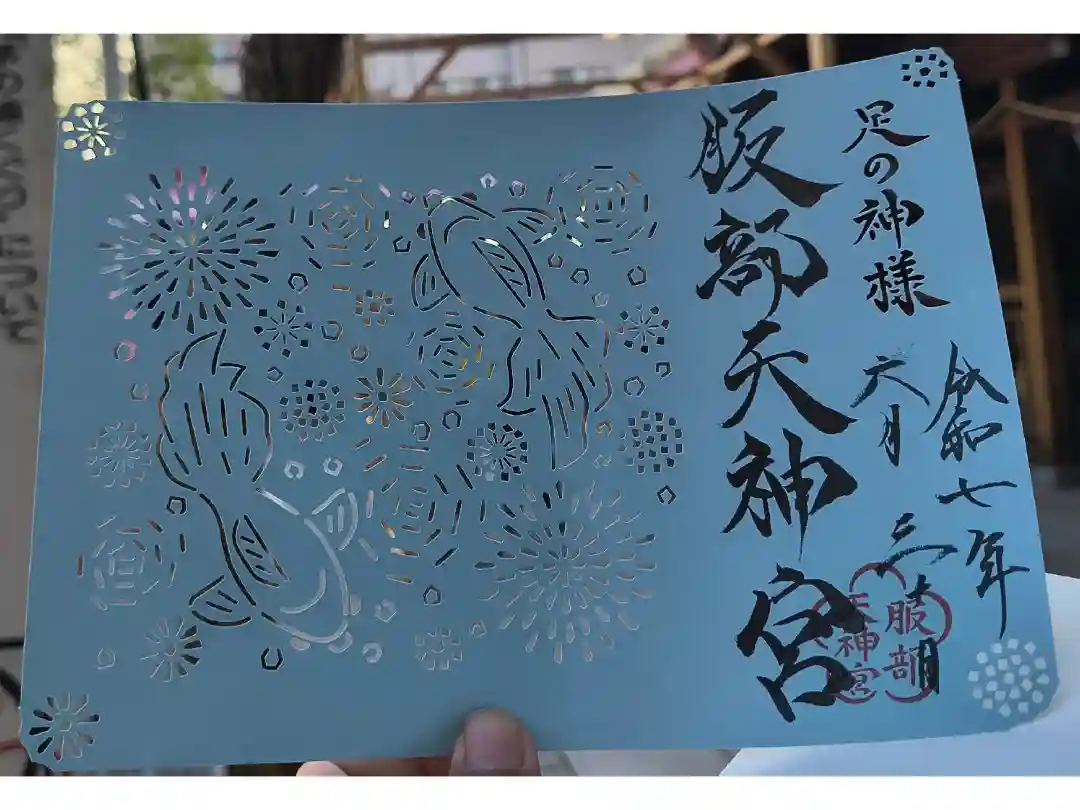 足の神様
令和七年
六月三十日
服部天神宮
服部
天神宮
について